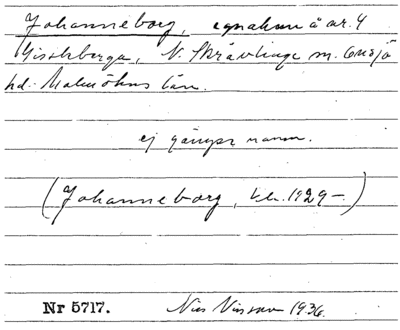 Johanneborg, egnahem å nr. 4
Gissleberga, N. Skrävlinge sn. Onsjö
hd. Malmöhus län.
ej gängse namn.
(Johanneborg, kh. 1929–)
Nr 5717. Nils Nilsson 1936.